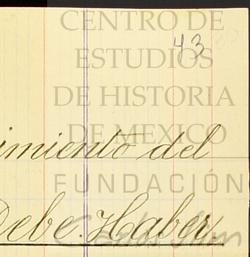 CENTRO DE
43
ESTUDIOS
DE HISTORIA
DE MEXICO
imiento del
FUNDACIÓN
Debe. Haber.
Carlos Slim